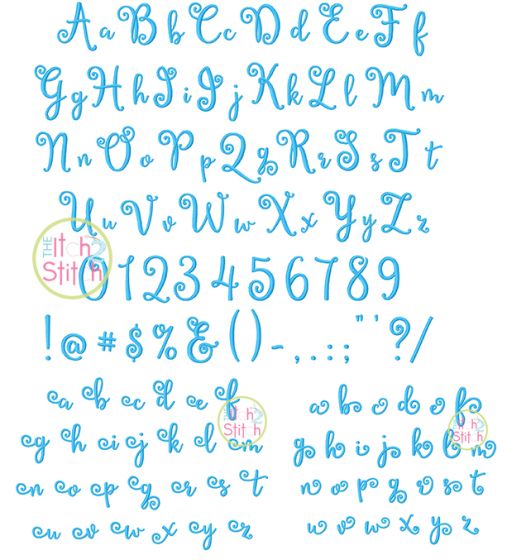 A a B b C c D d E e F f
G g H h I i J j K k L l M m
N n O o P p Q q R r S s T t
U u V v W w X x Y y Z z
THE Itch 2 Stitch
0 1 2 3 4 5 6 7 8 9
! @ # $ % & ( ) - , . : ; " ' ? /
a b c d e f
g h i j k l m
n o p q r s t
u v w x y z
Itch 2 Stitch
a b c d e f
g h i j k l m
n o p q r s t
u v w x y z
Itch 2 Stitch